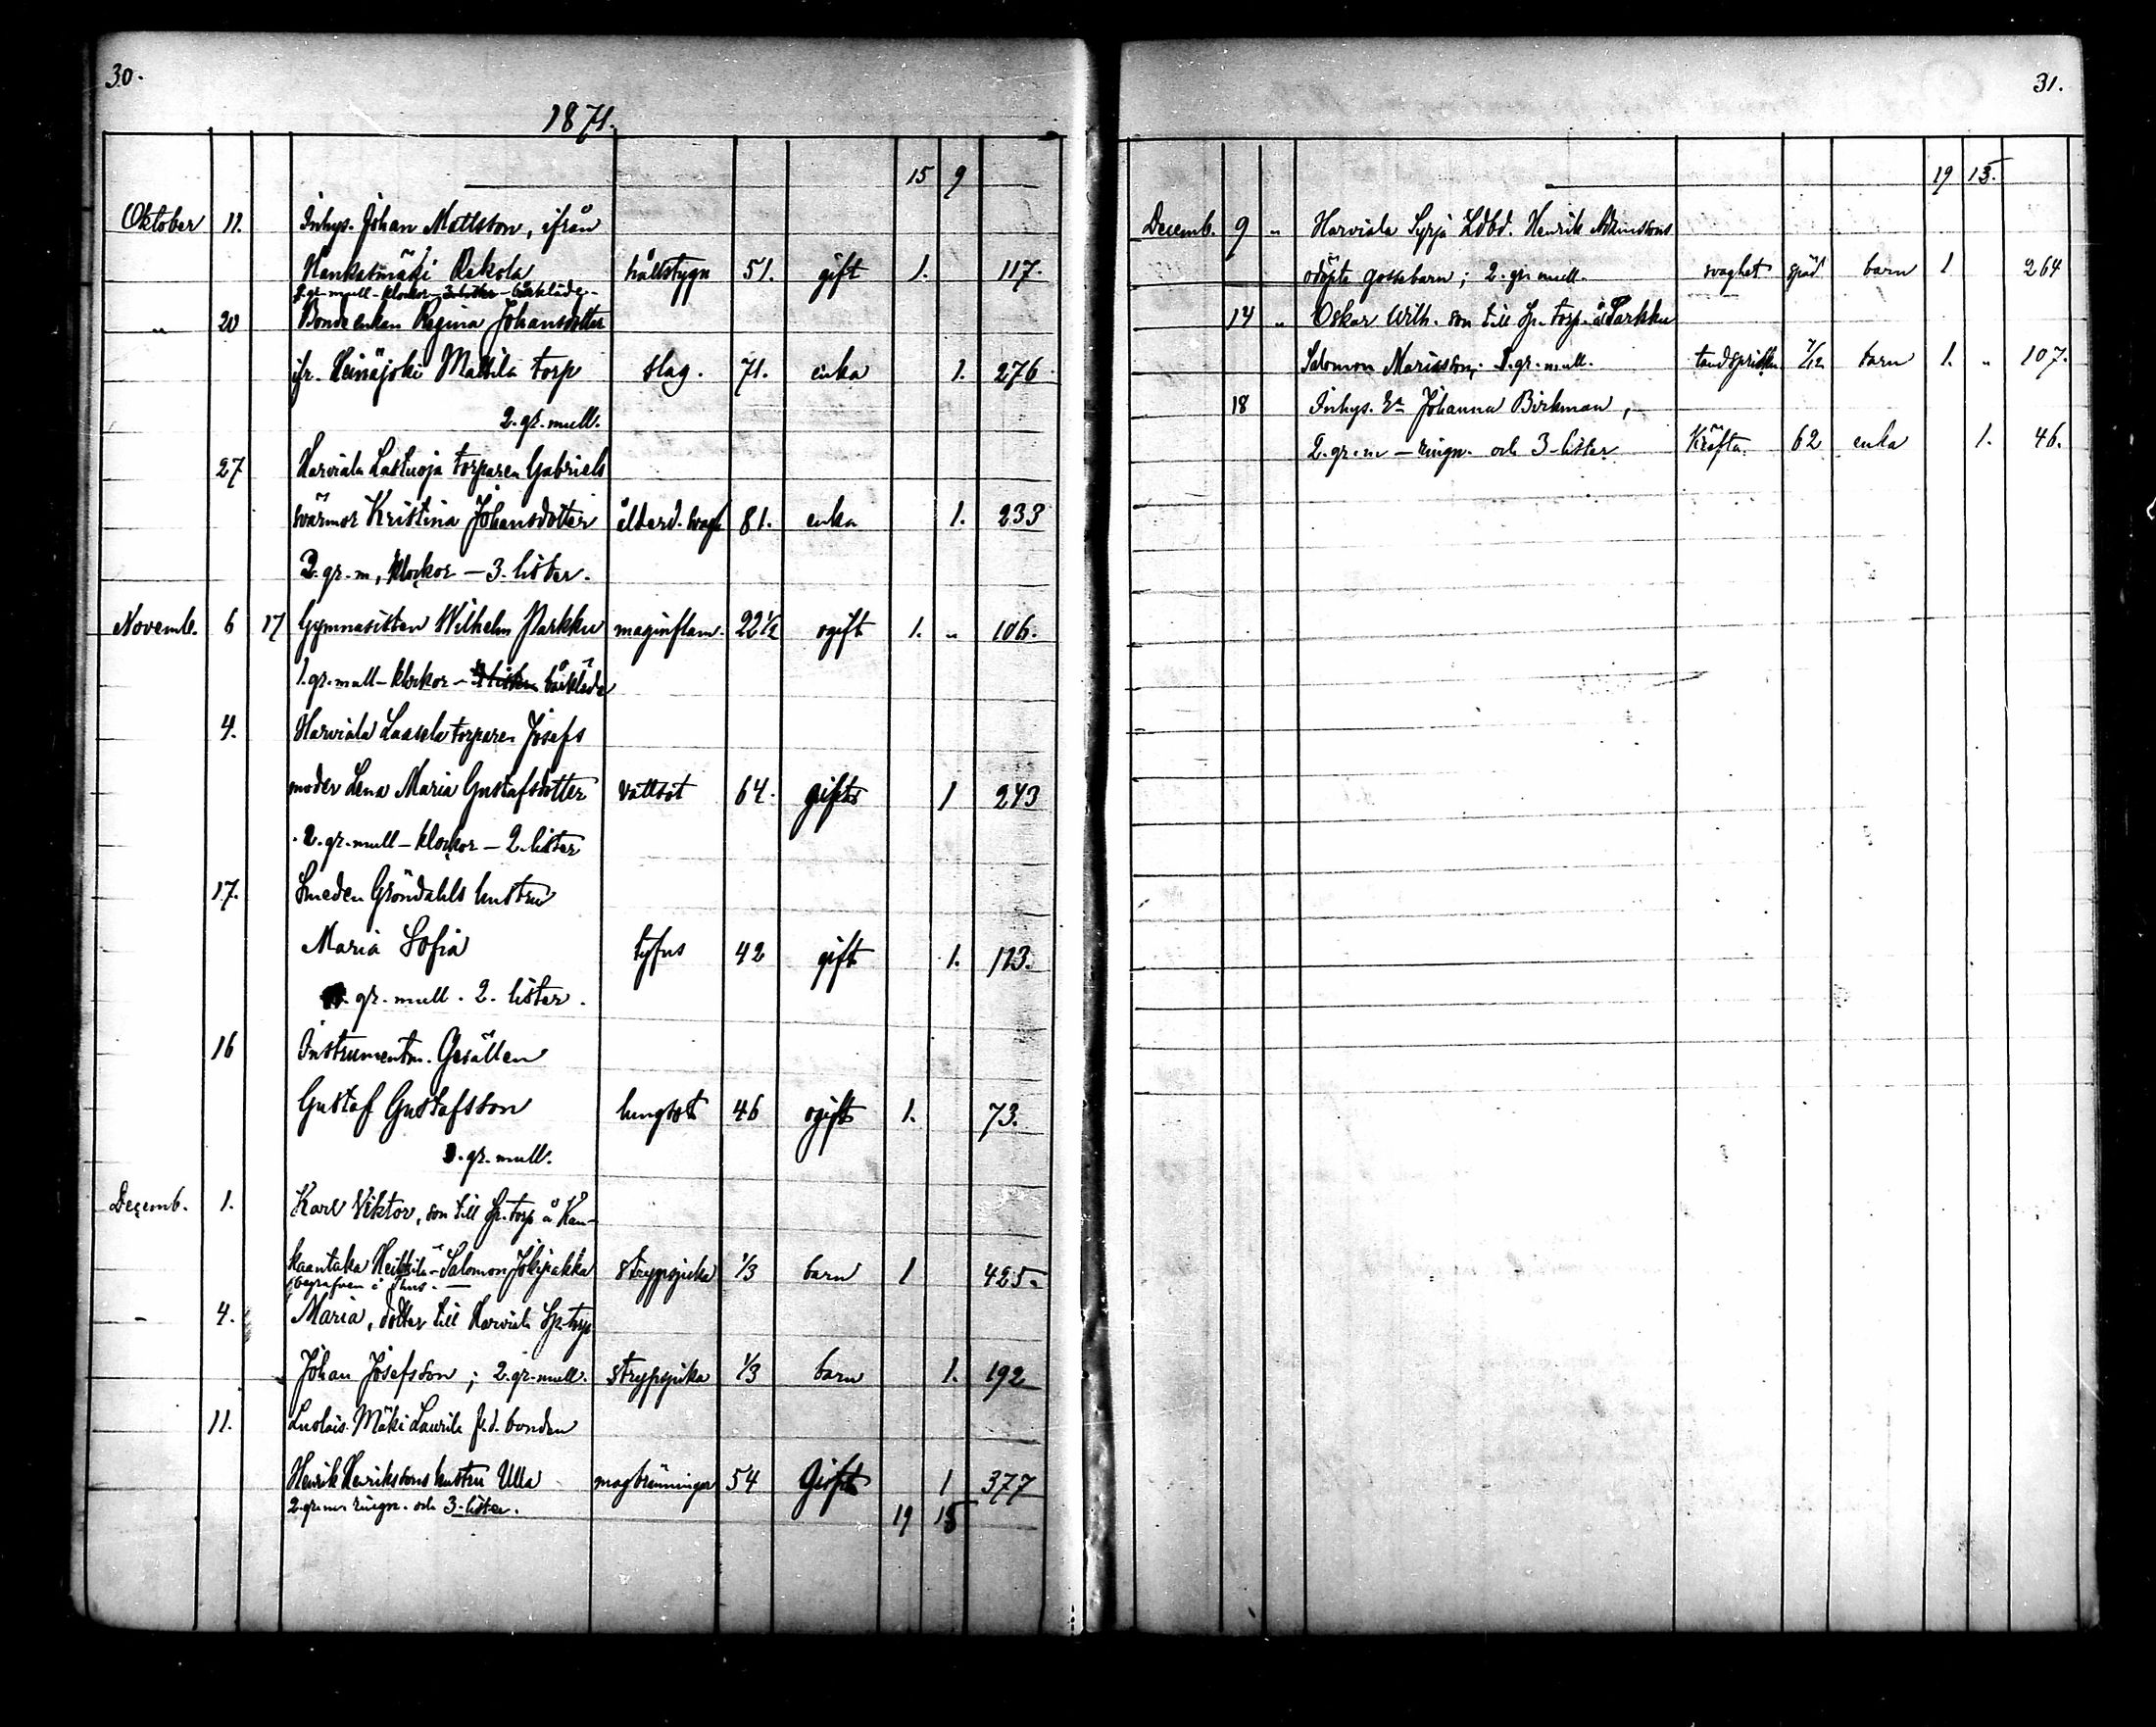 30.
1871.
15 9
Oktober 11. Inhys. Johan Mattsson, ifrån
Hankasmäki Rekola hållstygn 51. gift 1. 117.
2. gr. mull - klockor - 3 lister - bårkläde -
" 20 Bonde enkan Regina Johansdotter
ifr. Heinäjoki Mattila torp slag. 71. enka 1. 276
2. gr. mull.
27 Harviala Lastuoja torparen Gabriels
svärmor Kristina Johansdotter ålderd. svagh 81. enka 1. 233
2. gr. m, klockor - 3. lister.
Novemb. 6 17 Gymnasisten Wilhelm Parkku maginflam. 22 1/2 ogift 1. " 106.
1. gr. mull - klockor - bårkläde
4. Harviala Laasela torparen Josefs
moder Lena Maria Gustafsdotter vattsot 64. gift 1 243
2. gr. mull - klockor - 2. lister
17. Smeden Gröndahls hustru
Maria Sofia tyfus 42 gift 1. 113.
gr. mull. 2. lister.
16 Instrumentm. Gesällen
Gustaf Gustafsson lungsot 46 ogift 1. 73.
gr. mull.
Decemb. 1. Karl Viktor, son till Sp. torp. å Kan-
kaantaka Heikkilä Salomon Jokipakka strypsjuka 1/3 barn 1 425.
begrafven i
- 4. Maria, dotter till Harviala Sp. torp
Johan Josefsson; 2. gr. mull. strypsjuka 1/3 barn 1. 192
11. Luolais Mäki Laurila f.d. bonden
Henrik Henrikssons hustru Ulla magbränningar 54 Gift 1 377
2. gr. m. ringn. och 3. lister.
19 15
31.
19 13.
Decemb. 9 " Harviala Syrjä Ldbd. Henrik
odöpte gossebarn; 2. gr. mull. svaghet späd barn 1 264
14 " Oskar Wilh. son till Sp. torp. å Parkku
Salomon Mariasson; gr. mull. tandsprickn. 7/12 barn 1. " 107.
18 Inhys. Johanna Birkman,
2. gr. m - ringn. och 3 lister Kräfta. 62 enka 1. 46.